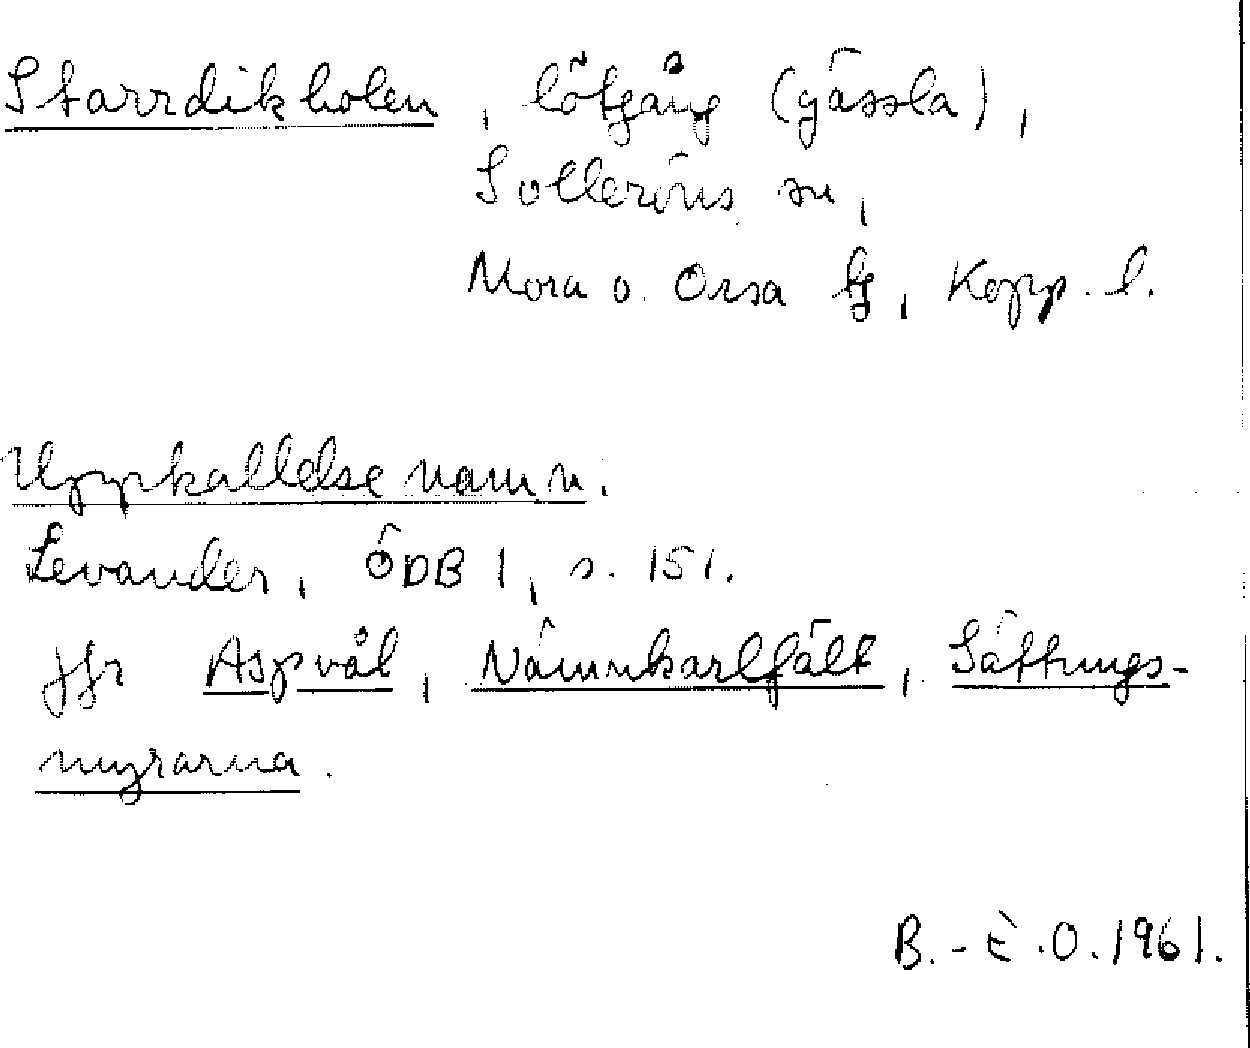 Starrdikholen, lötgång (gässla),
Solleröns sn,
Mora o. Orsa tg, Kopp. l.
Uppkallelsenamn.
Levander, ÖDB 1, s. 151.
Jfr Aspvål, Nämnkarlfält, Sättungs-
myrarna.
B.-E.O. 1961.